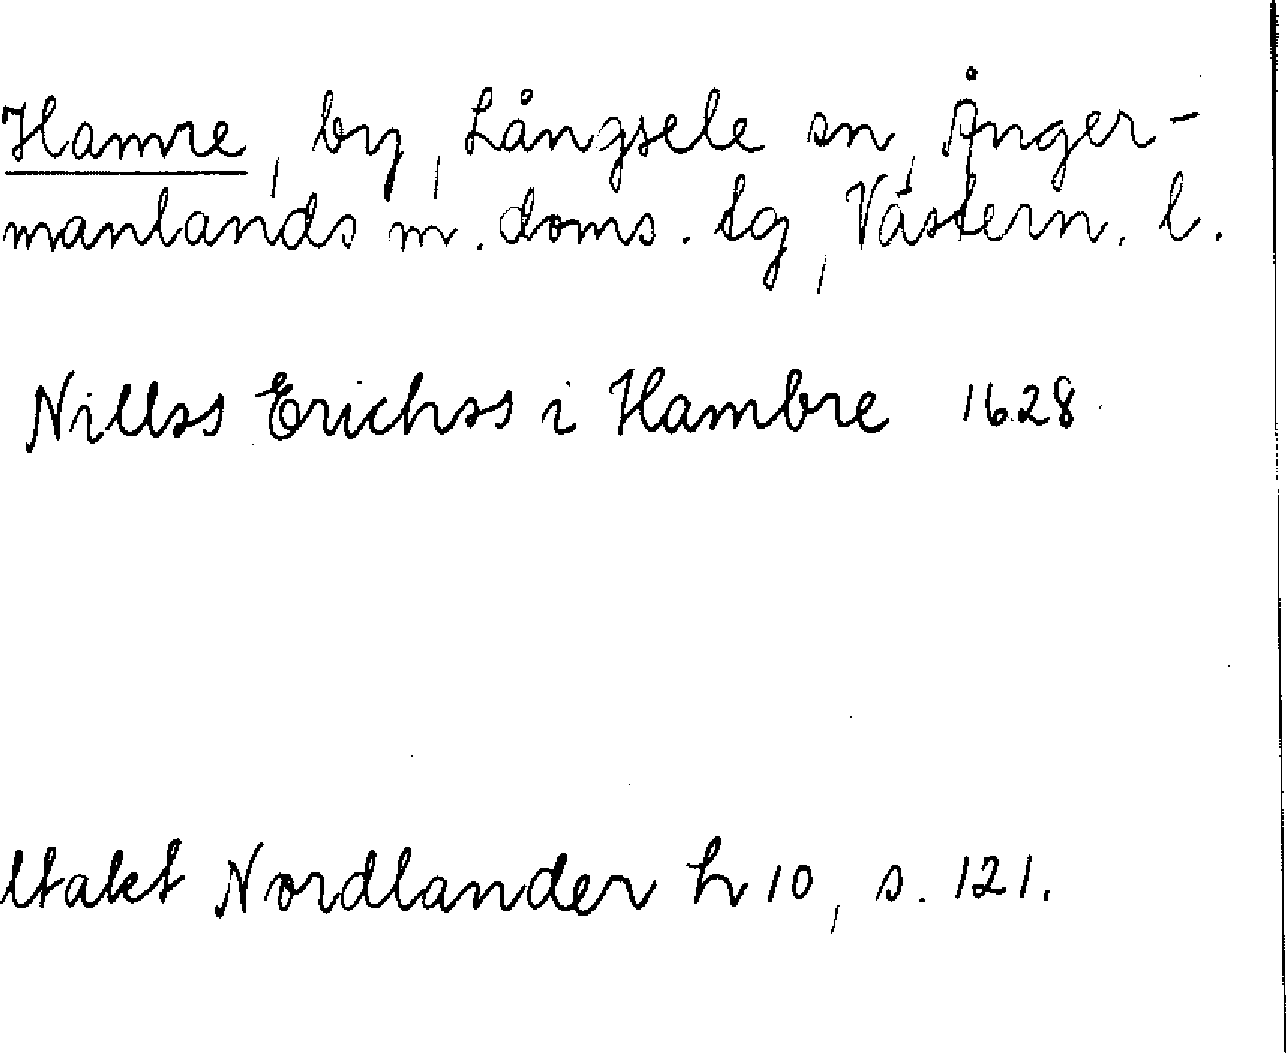 Hamre, by, Långsele sn, Ånger-
manlands m. doms. tg, Västern. l.
Nillss Erichss i Hambre 1628
ltakt Nordlander h 10, s. 121.